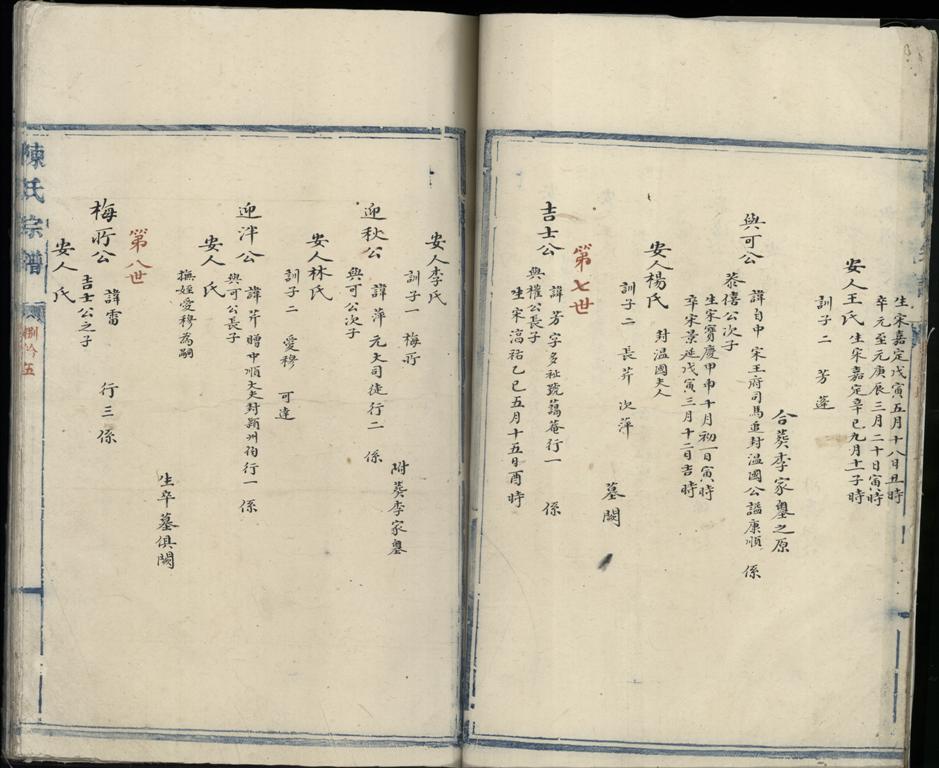 生宋嘉定戊寅五月十八日丑時
卒元至元庚辰三月二十日寅時
安人王氏 生宋嘉定辛巳九月十一子時
訓子二 芳 蓬
合葬李家壟之原
與可公 諱自中 宋王府司馬追封溫國公謚康順 係
恭僖公次子
生宋寶慶甲申十月初一日寅時
卒宋景延戊寅三月十二日吉時
安人楊氏 封溫國夫人
訓子二 長芹 次萍
墓闕
第七世
吉士公 諱芳字多祉號藹菴行一 係
與權公長子
生宋淳祐乙巳五月十五日酉時
安人李氏
訓子一 梅所
附葬李家壟
迎秋公 諱萍 元大司徒行二 係
與可公次子
安人林氏
訓子二 愛穆 可遠
迎泮公 諱芹贈中順大夫封潁州伯行一 係
與可公長子
安人 氏
撫姪愛穆為嗣
生卒墓俱闕
第八世
梅所公 諱雷 行三 係
吉士公之子
安人 氏
陳氏宗譜
捌拾五